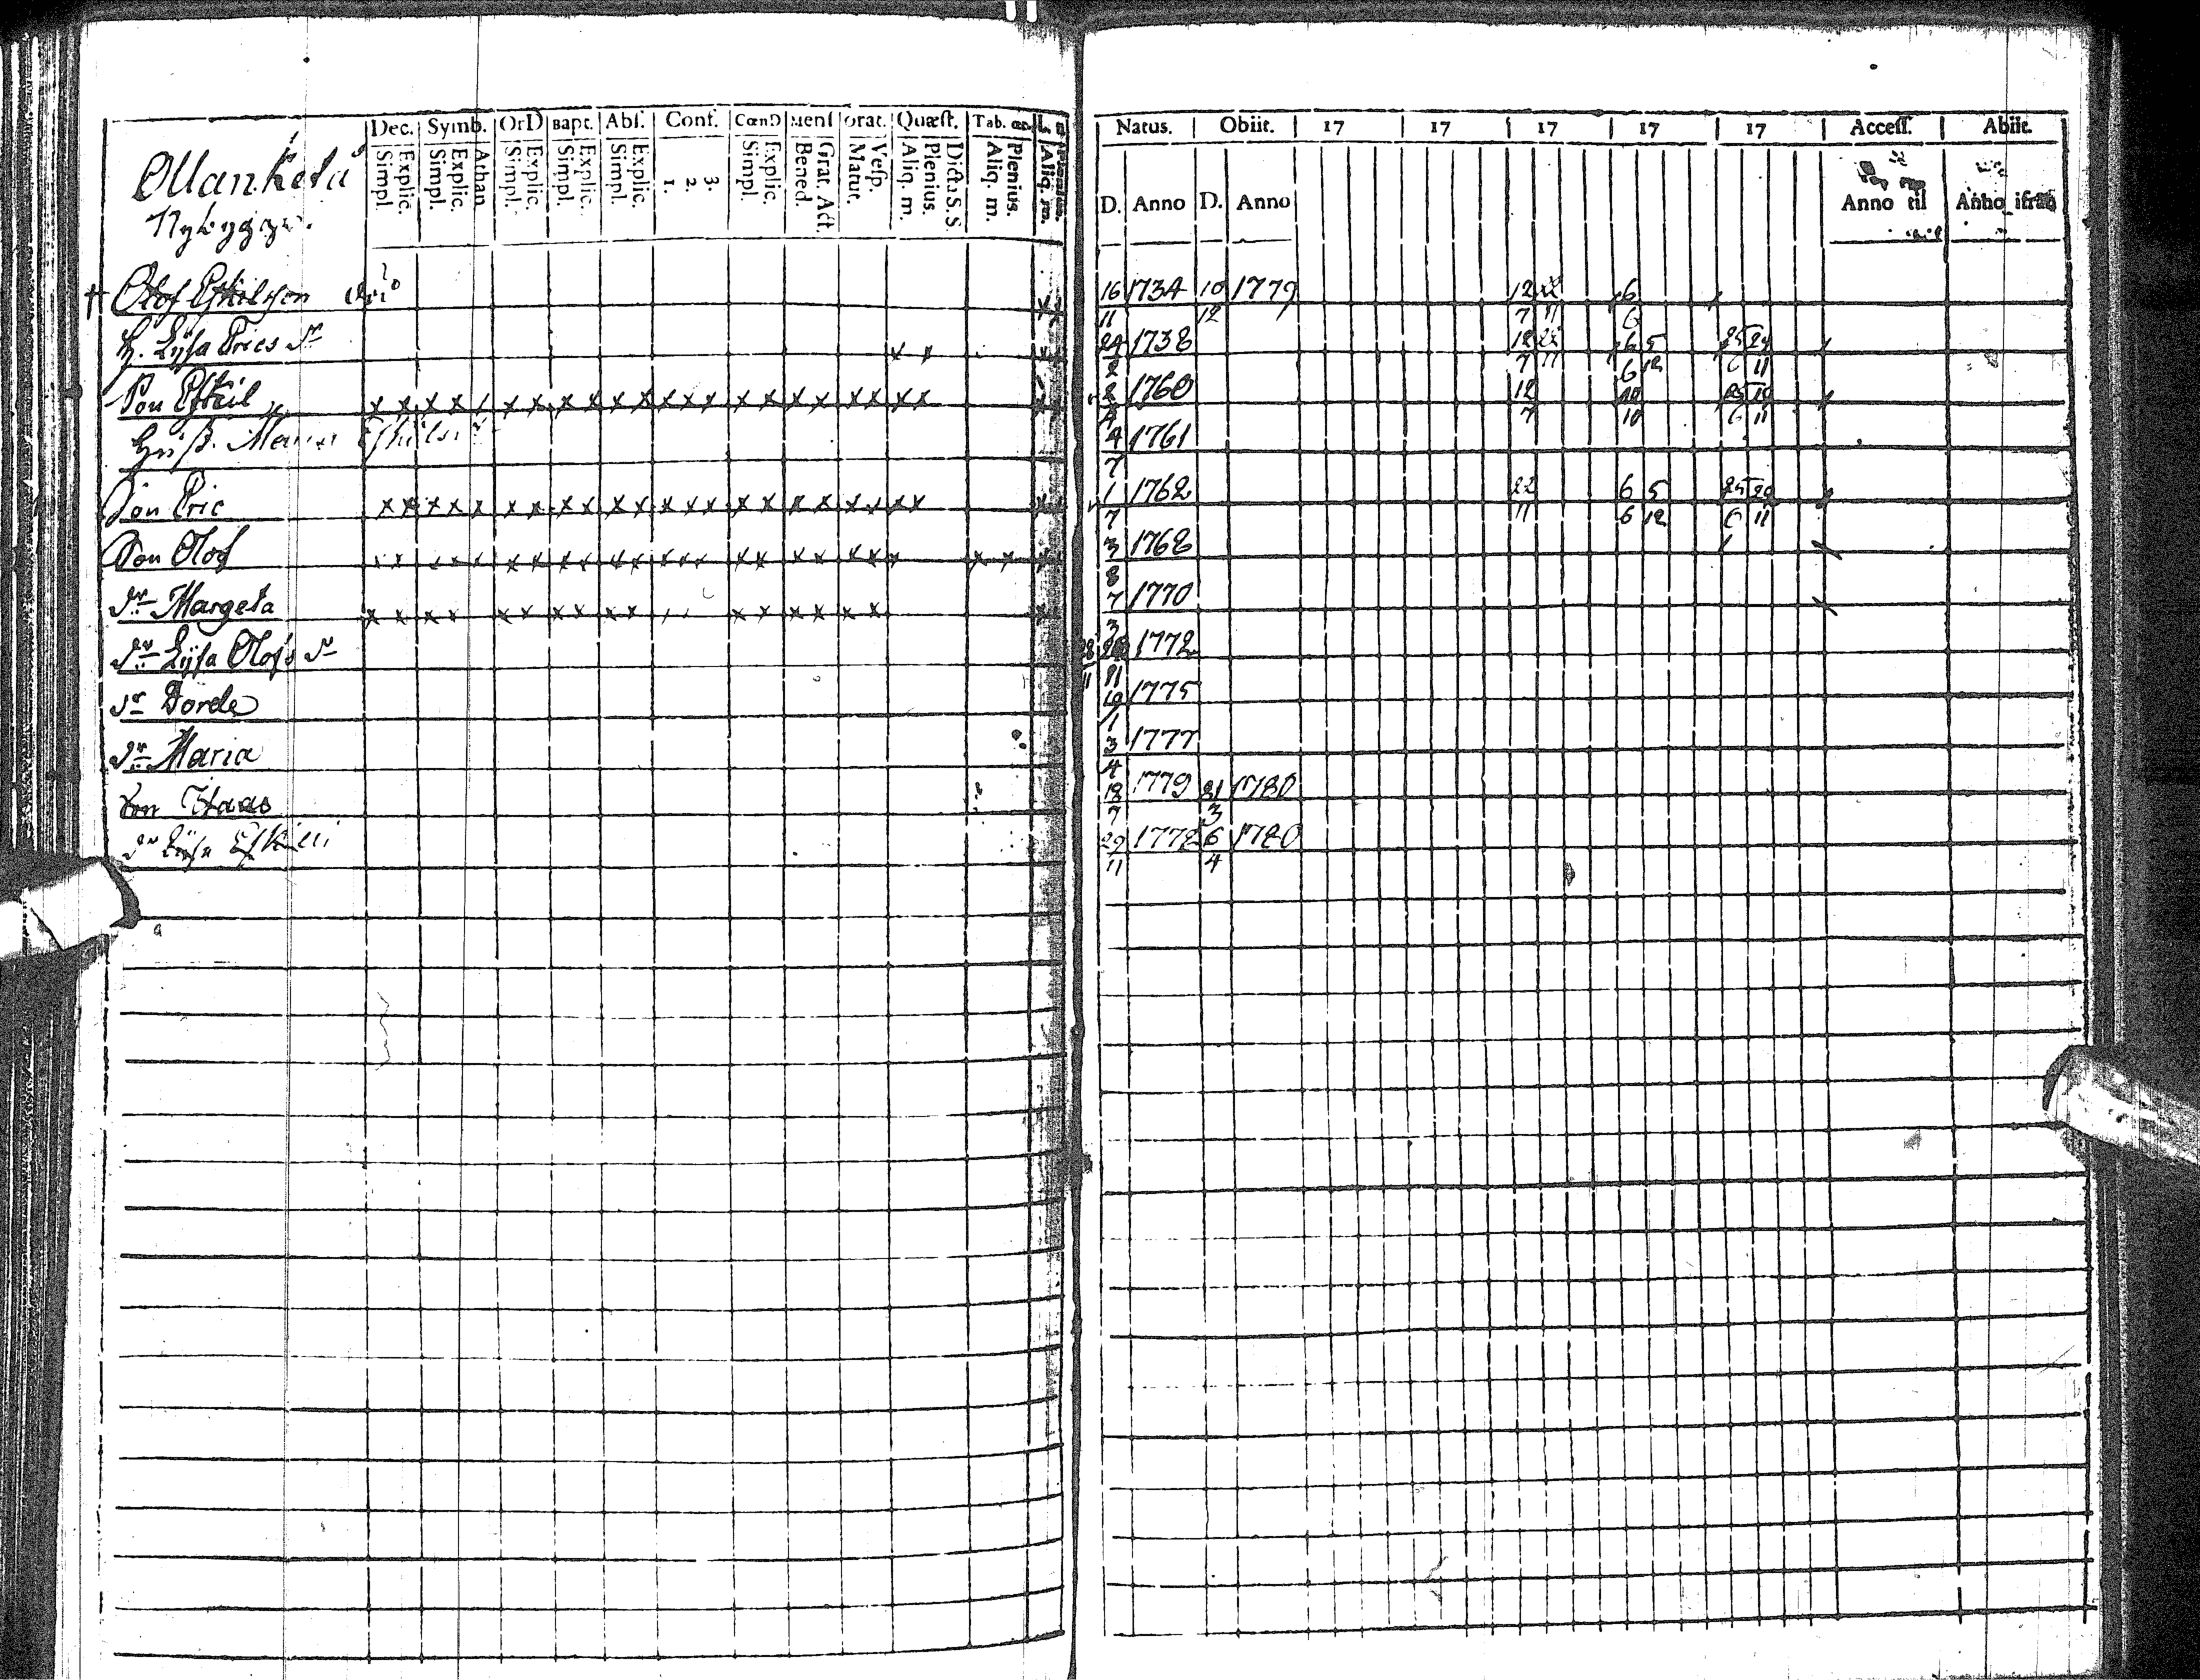 Dec. Symb. OrD Bapt. Abſ. Conf. CœnD Menſ Orat. Quæſt. Tab.
Simpl. Explic. Simpl. Explic. Athan. Simpl. Explic. Simpl. Explic. Simpl. Explic. 1. 2. 3. Simpl. Explic. Bened. Grat. Act. Matut. Veſp. Aliq. m. Plenius. Dict. S.S. Aliq. m. Plenius. Aliq. m.
Nybygge.
† Olof Eſkilſson
H. Lyſa Erics dr
Son Eſkil
Son Eric
Son Olof
dr Margeta
dr Lyſa Olofs dr
dr Dorde
dr Maria
Son Staas
dr Lyſa
Natus. Obiit. 17 17 17 17 17 Acceſſ. Abiit.
D. Anno D. Anno Anno til Anno ifrån
16/11 1734 10/12 1779 12/7 6/6
24/2 1738 12/7 22/11 6/6 5/12 25/6 29/11
1760 12/7 10/10 25/6 19/11
4/7 1761
1/7 1762 22/11 6/6 5/12 25/6 29/11
3/8 1768
7/3 1770
28/11 1772
19/1 1775
3/4 1777
12/7 1779 21/3 1780
29/11 1772 6/4 1780